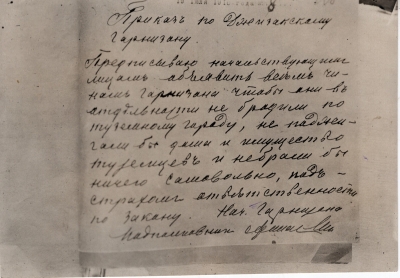 Приказъ по Джизакскому
гарнизону.
Предписываю начальствующимъ
лицамъ объявить всѣмъ чи-
намъ гарнизона чтобы они въ
отдѣльности не бродили по
туземному городу, не поджи-
гали бы дома и имущество
туземцевъ и не брали бы
ничего самовольно, подъ
страхомъ отвѣтственности
по закону. Нач. Гарнизона
Подполковникъ